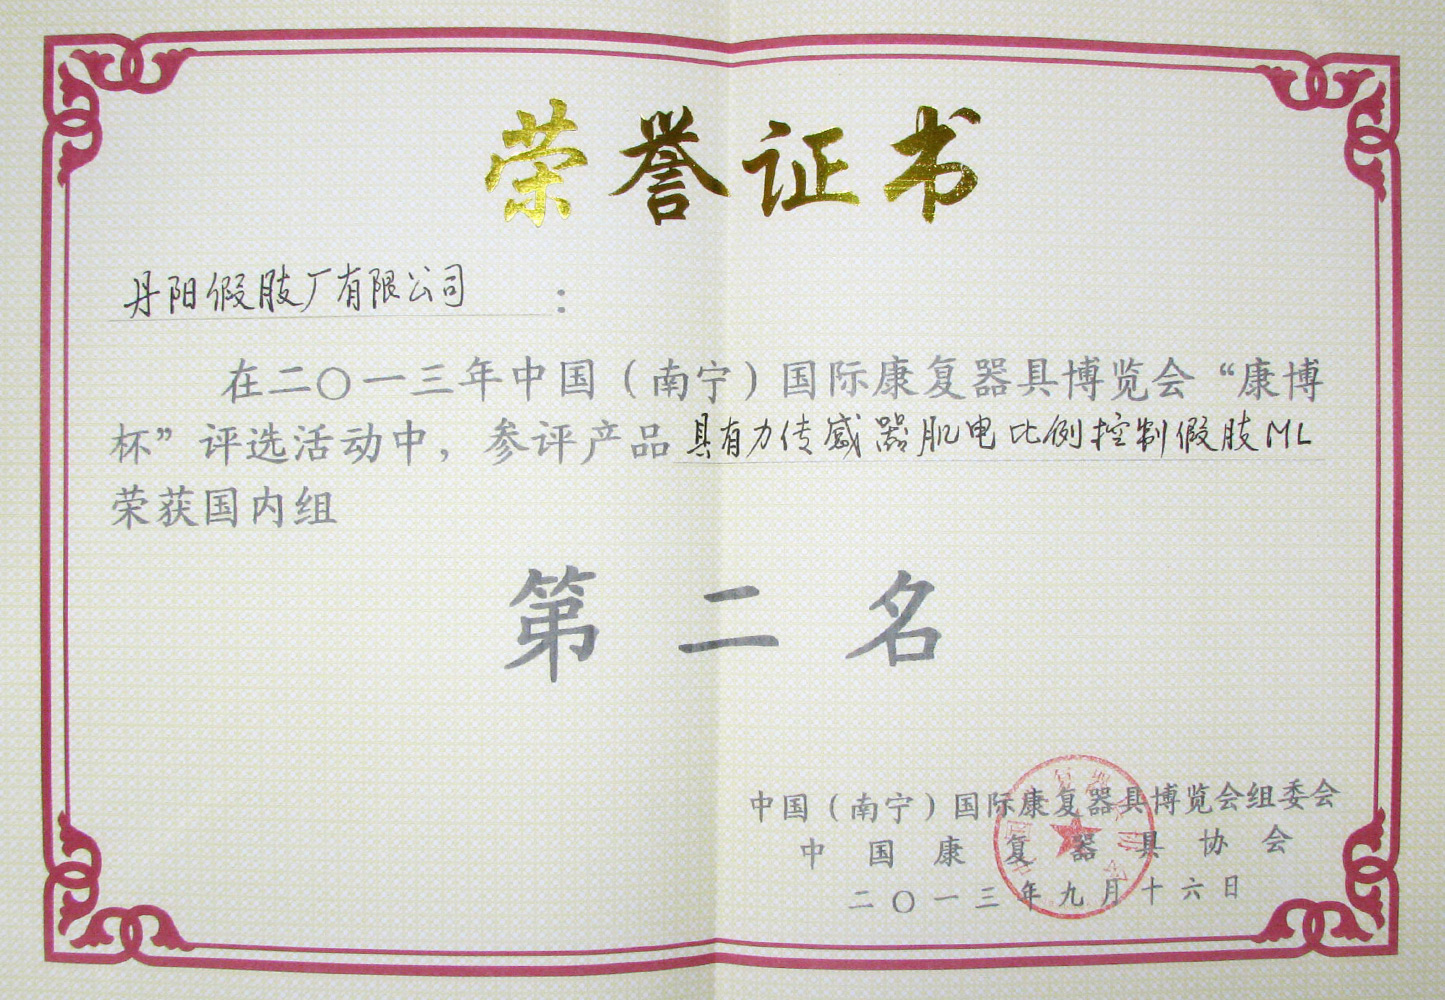 荣誉证书
丹阳假肢厂有限公司：
在二〇一三年中国（南宁）国际康复器具博览会“康博
杯”评选活动中，参评产品具有力传感器肌电比例控制假肢ML
荣获国内组
第二名
中国（南宁）国际康复器具博览会组委会
中国康复器具协会
二〇一三年九月十六日
中国康复器具协会